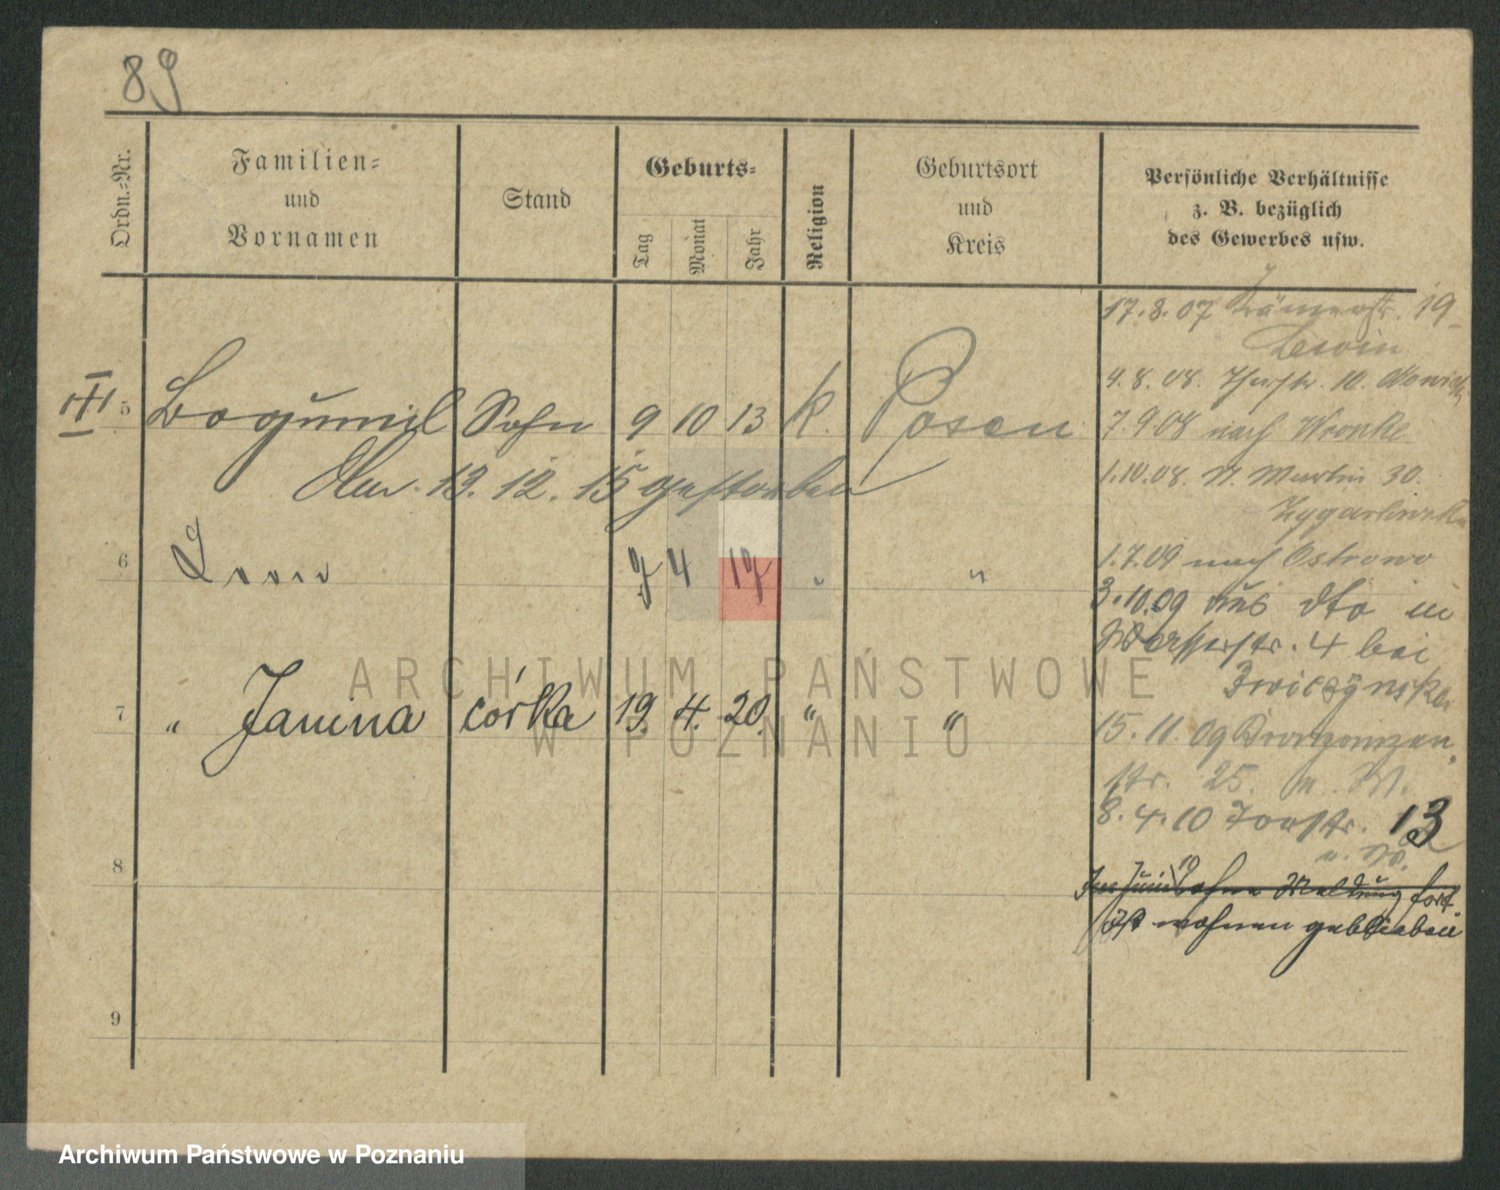 89
Ordn.-Nr.
Familien-
und
Vornamen
Stand
Geburts-
Tag
Monat
Jahr
Religion
Geburtsort
und
Kreis
Persönliche Verhältnisse
z. B. bezüglich
des Gewerbes usw.
17.8.07 Krämerstr. 19
Lewin
4.8.08. 10.
III 5 Bogumil Sohn 9 10 13 k. Posen
7.9.08 nach Wronke
Am 13. 12. 15 gestorben
1.10.08. St. Martin 30.
6 4 17 " "
1.7.09 nach Ostrowo
3.10.09 aus dto in
Wasserstr. 4 bei
7 " Janina córka 19. 4. 20. " "
15.11.09
str. 25.
8.4.10 Torstr. 13
8
Im Juni 10 ohne Meldung fort.
Ist wohnen geblieben
9
ARCHIWUM PAŃSTWOWE
W POZNANIU
Archiwum Państwowe w Poznaniu